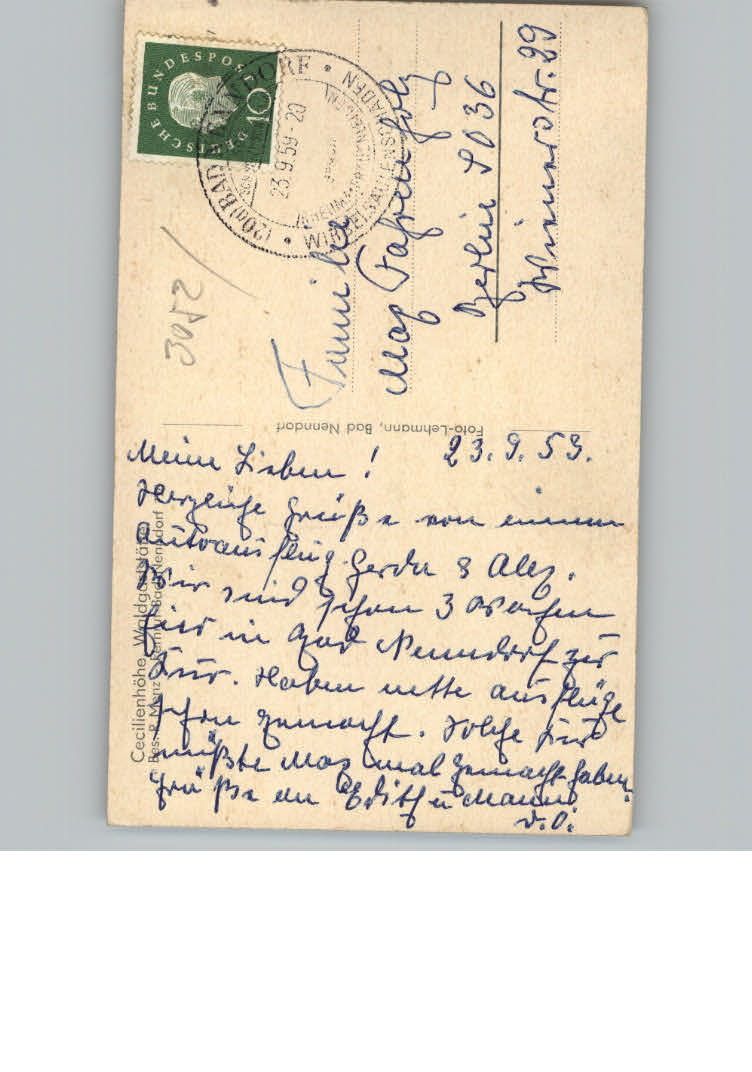 DEUTSCHE BUNDESPOST
10
(20a) BAD NENNDORF
23.9.59-20
RHEUMA FRAUENLEIDEN
WIRBELSÄULENSCHÄDEN
3052
Familie
Max
Berlin SO 36
Wienerstr. 29
Foto-Lehmann, Bad Nenndorf
Cecilienhöhe, Waldgaststätte
Bes. R. Menz Bad Nenndorf
Meine Lieben! 23.9.59.
Herzliche Grüße von einem
Autoausflug. Gerda & Alex.
Wir sind schon 3 Wochen
hier in Bad Nenndorf zur
Kur. Haben nette Ausflüge
schon gemacht. Solche Kur
müßte Max mal gemacht haben.
Grüße an Edith u Mann
d.O.